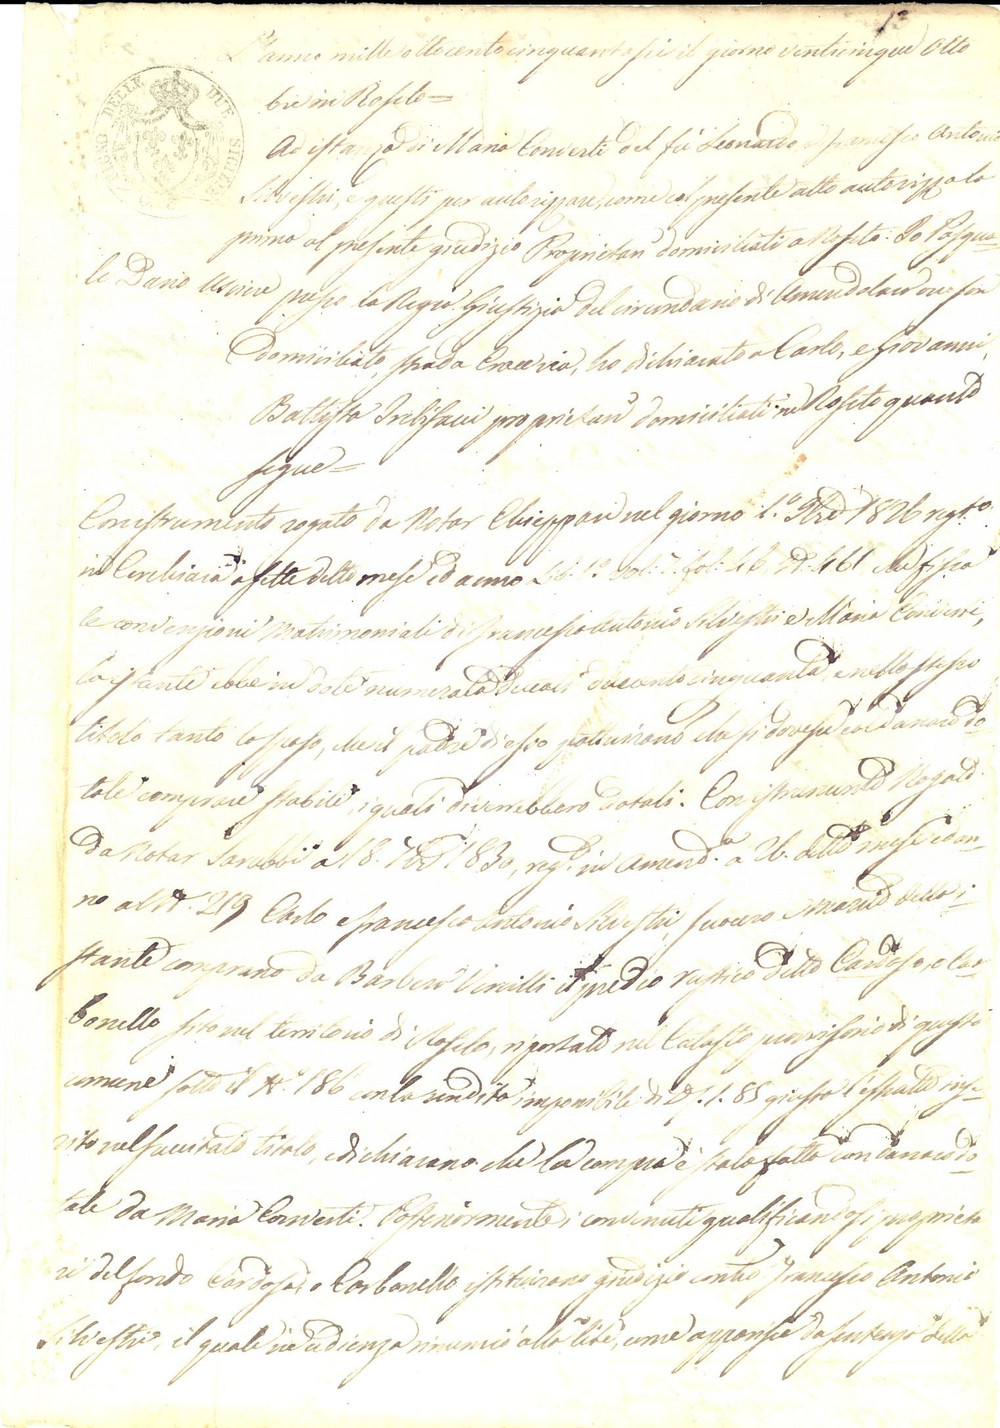 REGNO DELLE DUE SICILIE
L'anno mille ottocento cinquantasei il giorno venticinque Otto
bre in Roseto=
Ad istanza di Maria Converti del fù Leonardo e Francesco Antonio
Silvestri, e questi per autorizzare, come col presente atto autorizza la
prima al presente giudizio Proprietarj domiciliati a Roseto. Io Pasqua-
le Dario Usciere presso la Regia Giustizia del circondario di Amendolara ove son
domiciliato, strada ho dichiarato a Carlo, e Giovanni,
Battista proprietarj domiciliati in Roseto quanto
segue=
Con istrumento rogato da Notar nel giorno 1.° 1826 reg.to
in Cerchiara a sette detto mese ed anno Lib. 1.° Vol. fol. 46 N. 461 che fissa
le convenzioni matrimoniali di Francesco Antonio Silvestri e Maria Converti,
la istante ebbe in dote numerata ducati duecento cinquanta, e nello stesso
titolo tanto lo sposo, che il padre di esso pattuirono che si dovesse col danaro do-
tale comprare stabile, i quali diverrebbero dotali. Con istrumento Rogato
da Notar a 18. 1830, reg.to in Amend.a a 26. detto mese ed an-
no al N.° 219 Carlo e Francesco Antonio Silvestri, suocero e marito della i-
stante comprano da il predio rustico detto Cardosa, o Car-
bonello sito nel territorio di Roseto, riportato nel Catasto provvisorio di questo
comune sotto il N.° 186 con la rendita imponibile di D. 1. 85 giusta l'estratto inse-
rito nel succitato titolo, e dichiarano che la compra è stata fatta con danaro do-
tale da Maria Converti. Posteriormente i convenuti qualificandosi proprieta
ri del fondo Cardosa, o Carbonello istituirono giudizio contro Francesco Antonio
Silvestri, il quale in udienza rinunciò alla lite, come apparisce da sentenza della